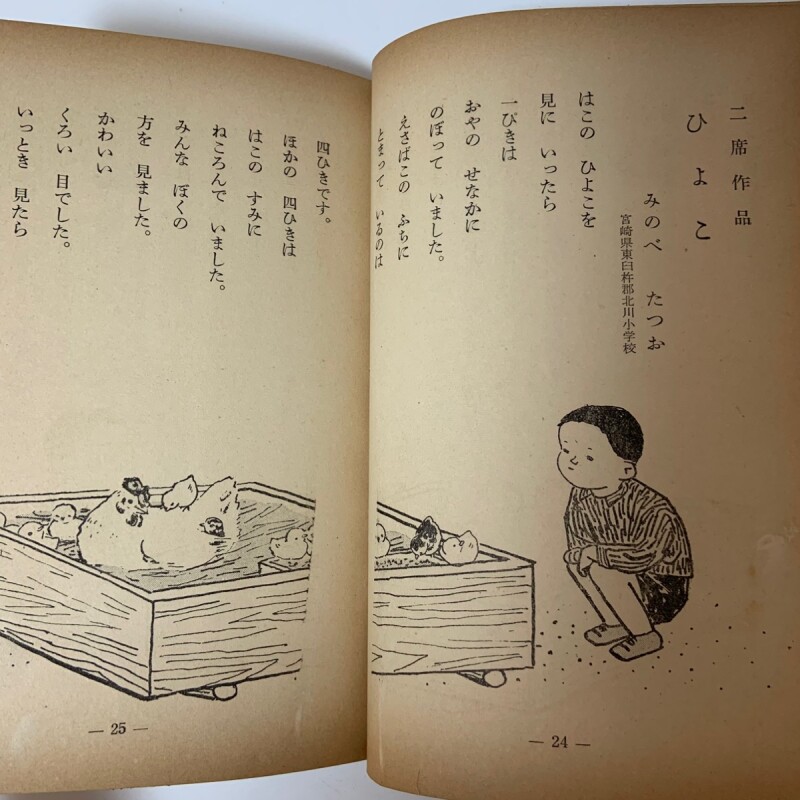 二席作品
ひよこ
みのべ たつお
宮崎県東臼杵郡北川小学校
はこの ひよこを
見に いったら
一ぴきは
おやの せなかに
のぼって いました。
えさばこの ふちに
とまって いるのは
— 24 —
四ひきです。
ほかの 四ひきは
はこの すみに
ねころんで いました。
みんな ぼくの
方を 見ました。
かわいい
くろい 目でした。
いっとき 見たら
— 25 —